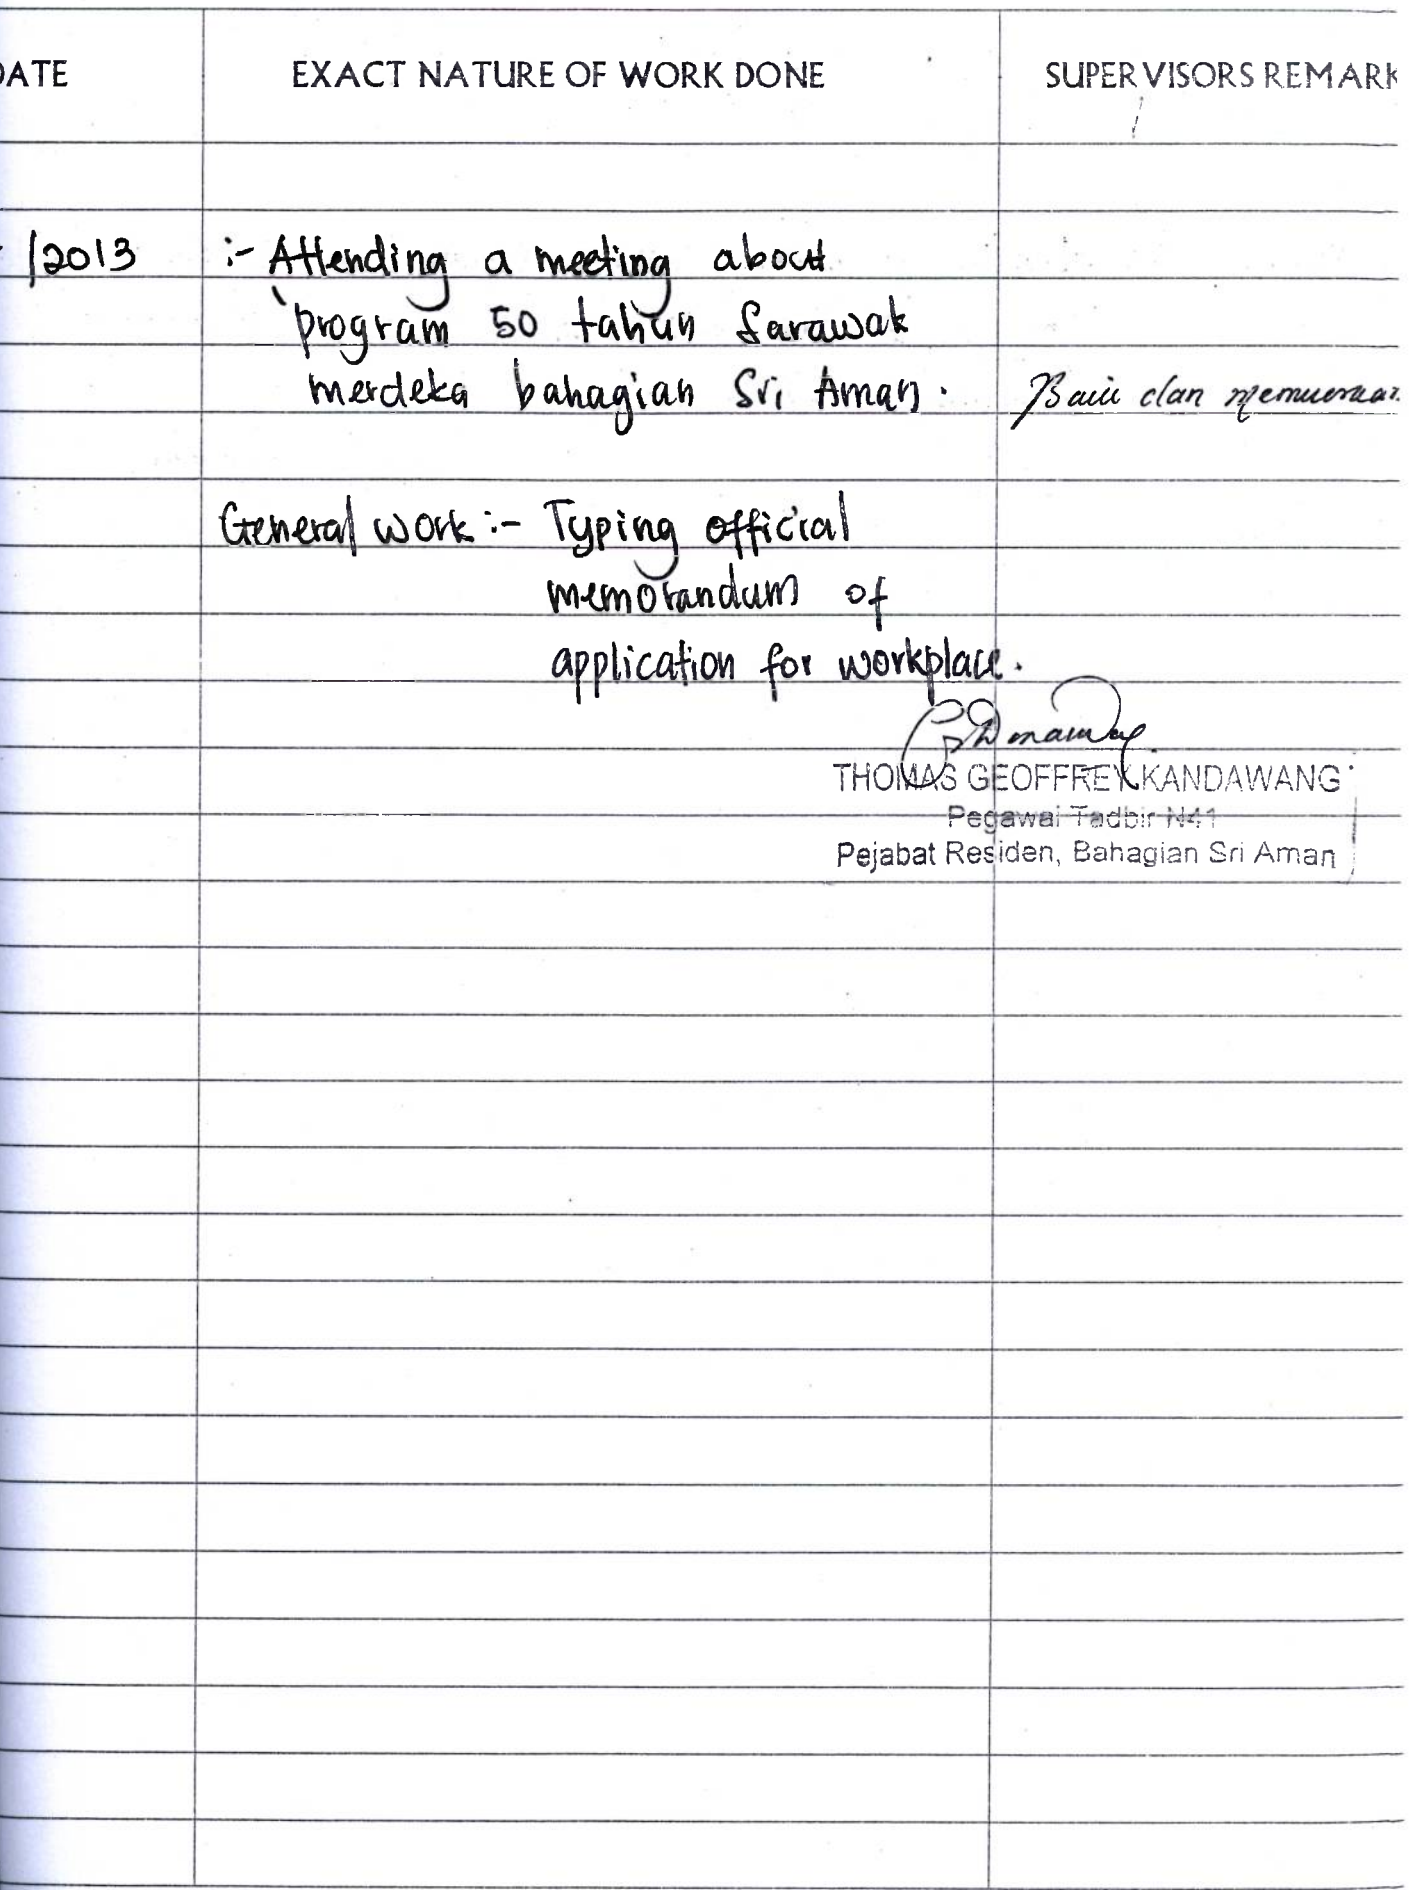 DATE EXACT NATURE OF WORK DONE SUPERVISORS REMARK
/2013 :- Attending a meeting about
program 50 tahun Sarawak
merdeka bahagian Sri Aman. Baik dan memuaskan
General work :- Typing official
memorandum of
application for workplace.
THOMAS GEOFFREY KANDAWANG
Pegawai Tadbir N41
Pejabat Residen, Bahagian Sri Aman